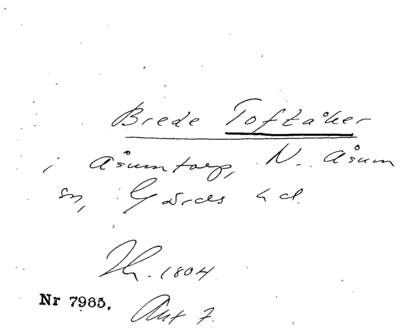 Brede Toftåker
i Åsumtorp, N. Åsum
sn, Gärds hd.
Th. 1804
Nr 7965. Akt 7.